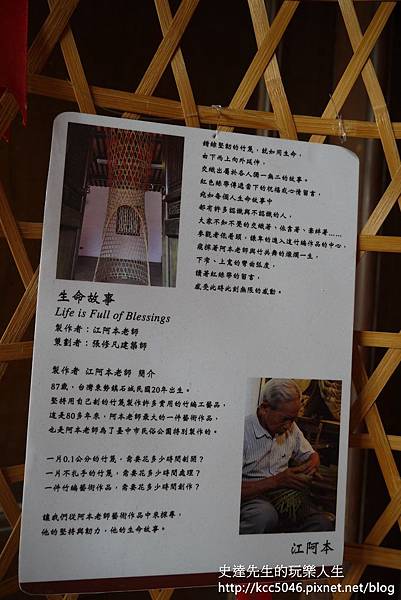 精緻堅韌的竹篾，就如同生命，
由下而上向外延伸，
交織出屬於各人獨一無二的故事，
紅色絲帶傳遞當下的祝福或心情留言，
宛如每個人生命故事中
都有許多認識與不認識的人，
大家不知不覺的交織著、依靠著、牽絆著……
參觀者低著頭，謙卑的進入這竹編作品的中心，
感受阿本老師與竹共舞的燦爛一生，
下窄、上寬的彎曲弧度，
讀著紅絲帶的留言，
感受此時此刻無限的感動。
生命故事
Life is Full of Blessings
製作者：江阿本老師
策劃者：張修凡建築師
製作者 江阿本老師 簡介
87歲，台灣東勢鎮石城民國20年出生。
堅持用自己剖的竹篾製作許多實用的竹編工藝品，
這是80多年來，阿本老師最大的一件藝術作品，
也是阿本老師為了臺中市民俗公園特別製作的。
一片0.1公分的竹篾，需要花多少時間剖開？
一片不扎手的竹篾，需要花多少時間處理？
一件竹編藝術作品，需要花多少時間創作？
讓我們從阿本老師藝術作品中來探尋，
他的堅持與韌力，他的生命故事。
江阿本
史達先生的玩樂人生
http://kcc5046.pixnet.net/blog